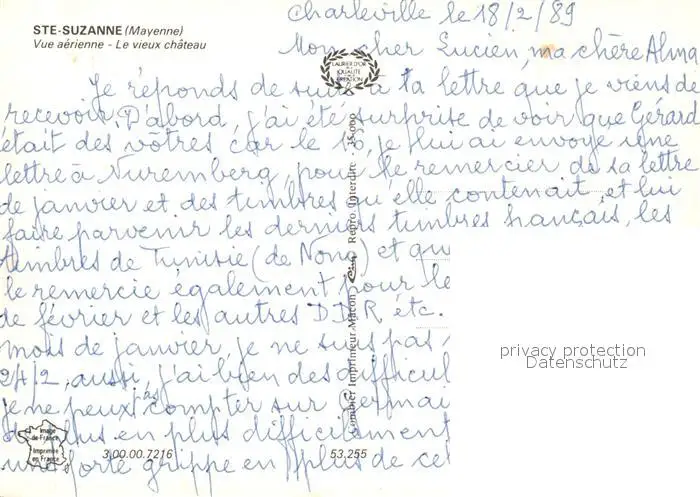 Charleville le 18/2/89
STE-SUZANNE (Mayenne)
Vue aérienne - Le vieux château
Mon cher Lucien, ma chère Alma
LAURIER D'OR
QUALITÉ
CRÉATION
Je réponds de suite à ta lettre que je viens de
recevoir. D'abord, j'ai été surprise de voir que Gérard
était des vôtres car le 10, je lui ai envoyé une
lettre à Nuremberg, pour le remercier de sa lettre
de janvier et des timbres qu'elle contenait, et lui
faire parvenir les derniers timbres français, les
timbres de Tunisie (de Nono) et que
le remercie également pour le
de février et les autres DDR étc.
mois de janvier, je ne suis pas
2/4/2, aussi, j'ai bien des difficul
je ne peux pas compter sur Germai
plus en plus difficilement
une forte grippe en plus de ce
Combier Imprimeur Mâcon Cim Repro. Interdite 35.000
privacy protection
Datenschutz
Image
de France
Imprimée
en France
3.00.00.7216
53.255